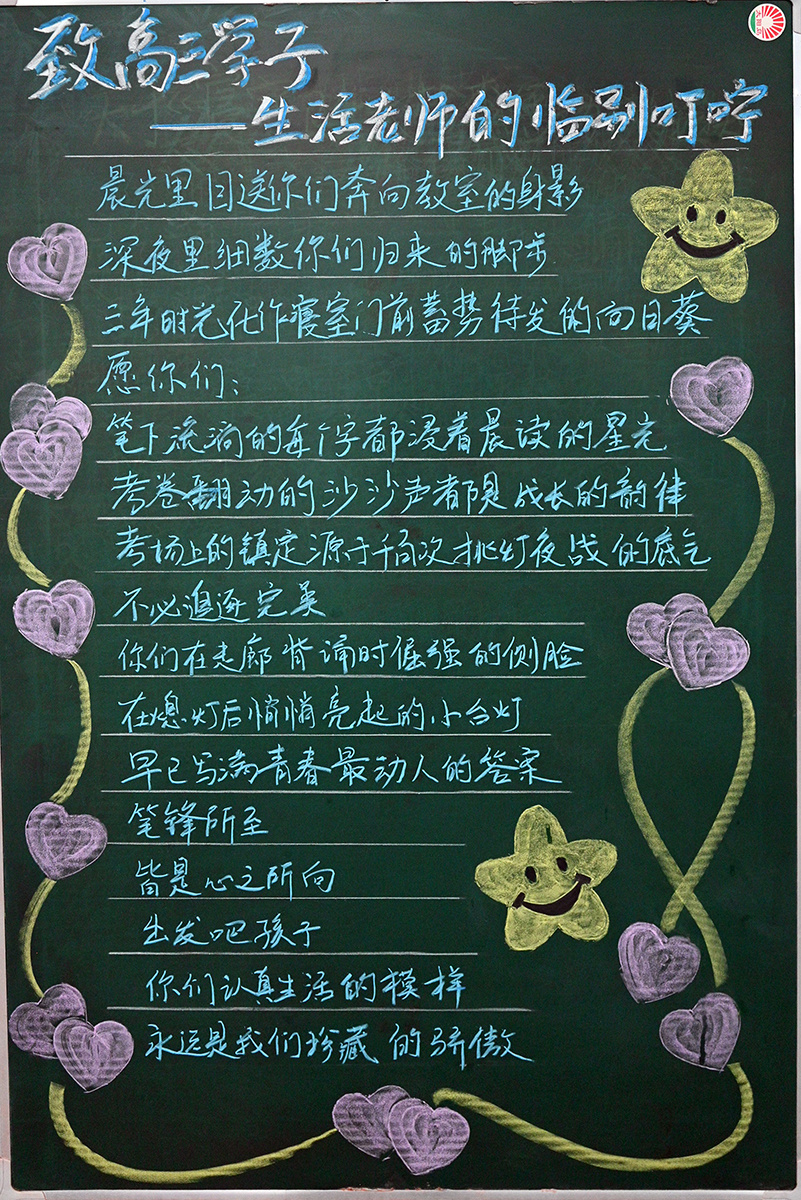 致高三学子
——生活老师的临别叮咛
晨光里目送你们奔向教室的身影
深夜里细数你们归来的脚步
三年时光化作寝室门前蓄势待发的向日葵
愿你们：
笔下流淌的每个字都浸着晨读的星光
考卷翻动的沙沙声都是成长的韵律
考场上的镇定源于千百次挑灯夜战的底气
不必追逐完美
你们在走廊背诵时倔强的侧脸
在熄灯后悄悄亮起的小台灯
早已写满青春最动人的答案
笔锋所至
皆是心之所向
出发吧孩子
你们认真生活的模样
永远是我们珍藏的骄傲